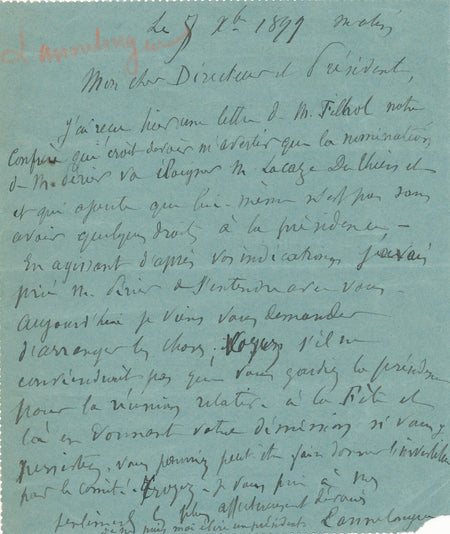 Le 5 Xbre 1899 matin
Lannelongue
Mon cher Directeur et Président,
J'ai reçu hier une lettre de M. Filhol notre
Confrère qui croit devoir m'avertir que la nomination
de M. Périer va éloigner M. Lacaze Duthiers et
et qui ajoute que lui-même n'est pas sans
avoir quelques droits à la présidence —
En agissant d'après vos indications j'avais
prié M. Périer de s'entendre avec vous
aujourd'hui je viens vous demander
d'arranger les choses; Voyez s'il ne
conviendrait pas que vous gardiez la présidence
pour la réunion relative à la Fête et
là en donnant votre démission si vous y
persistez, vous pourriez peut-être faire donner
par le comité. Croyez, je vous prie à mes
sentiments les plus affectueusement dévoués
Lannelongue